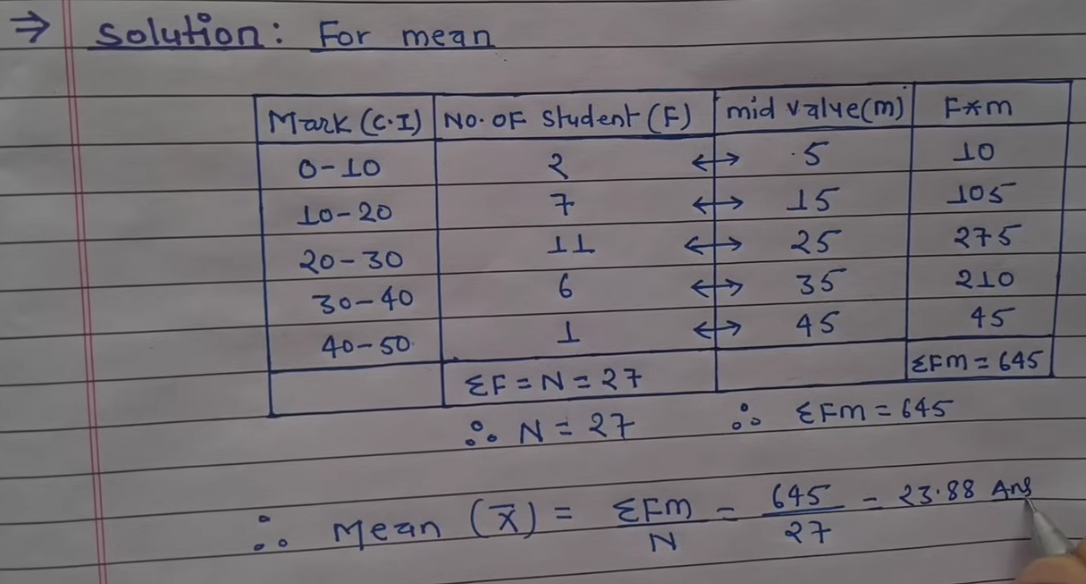 ⇒ Solution: For mean
Mark (C.I) No. OF Student (F) mid value(m) F*m
0-10 2 ↔ 5 10
10-20 7 ↔ 15 105
20-30 11 ↔ 25 275
30-40 6 ↔ 35 210
40-50 1 ↔ 45 45
ΣF = N = 27 ΣFm = 645
∴ N = 27 ∴ ΣFm = 645
∴ Mean (x̄) = ΣFm/N = 645/27 = 23.88 Ans